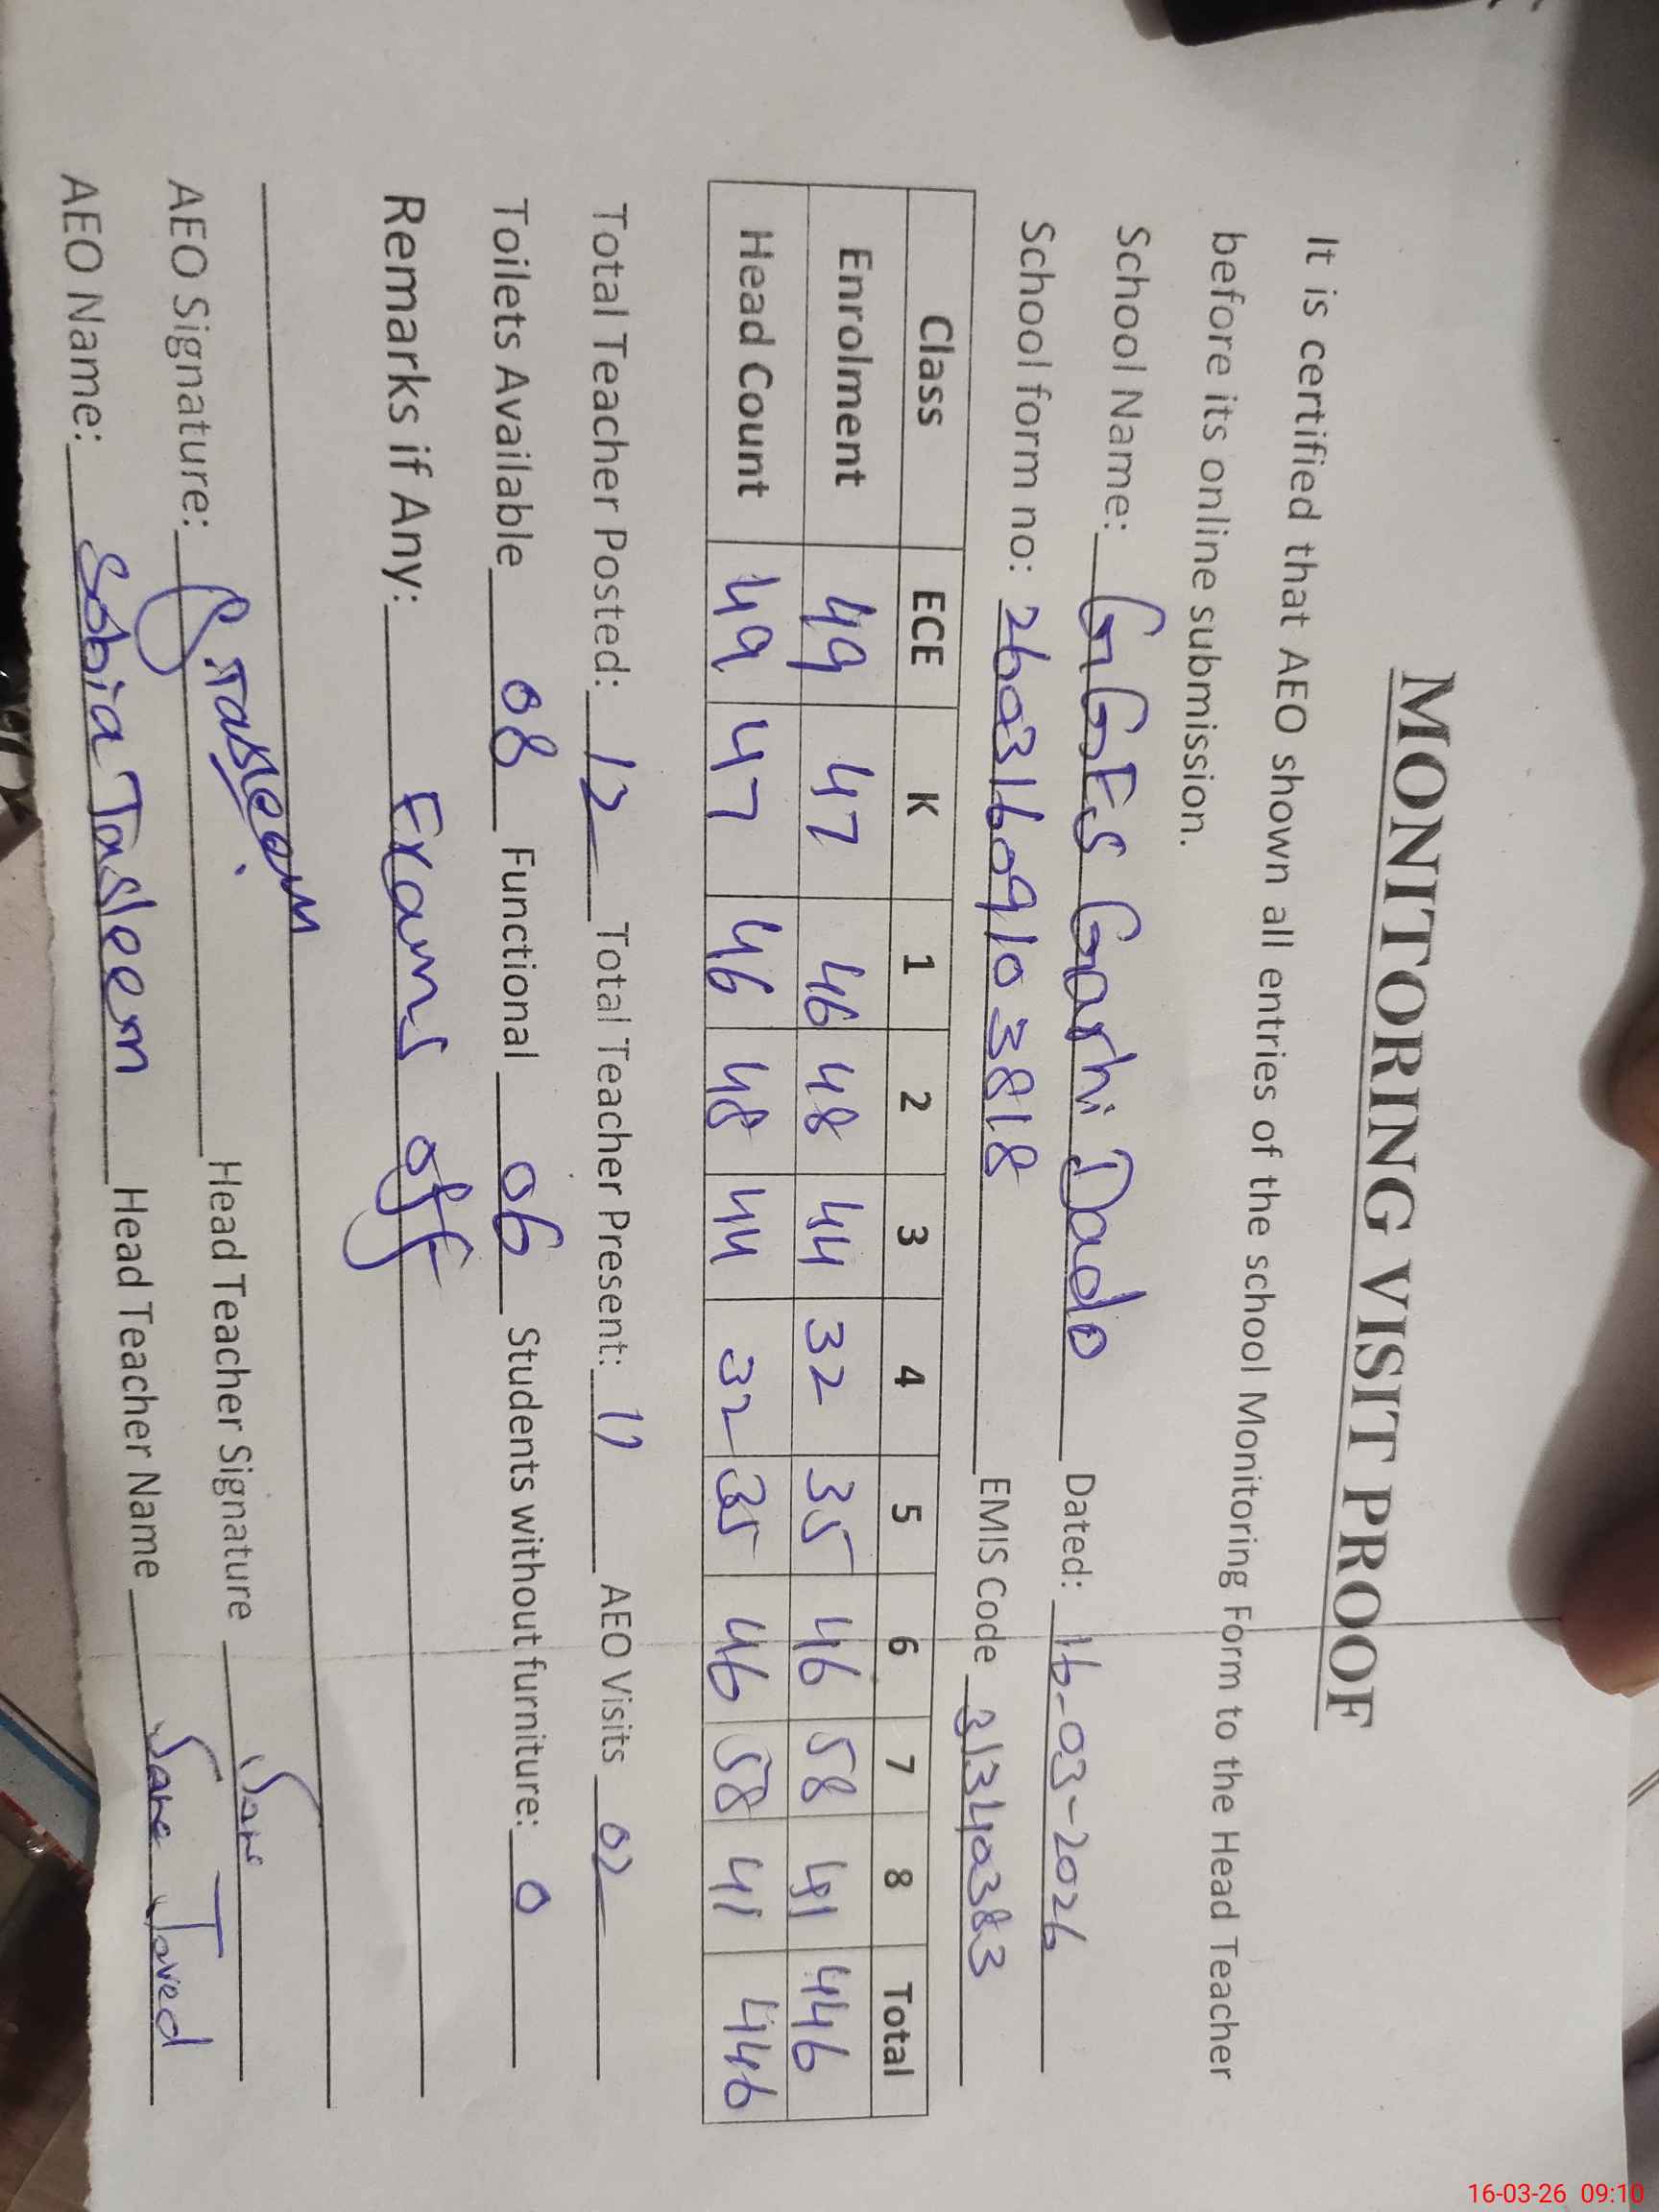 MONITORING VISIT PROOF
It is certified that AEO shown all entries of the school Monitoring Form to the Head Teacher
before its online submission.
School Name: GGES Garhi Dado Dated: 16-03-2026
School form no: 26031609103818 EMIS Code 31340383
Class ECE K 1 2 3 4 5 6 7 8 Total
Enrolment 49 47 46 48 44 32 35 46 58 41 446
Head Count 49 47 46 48 44 32 35 46 58 41 446
Total Teacher Posted: 12 Total Teacher Present: 11 AEO Visits 02
Toilets Available 08 Functional 06 Students without furniture: 0
Remarks if Any: Exams off
AEO Signature: S.Tasleem Head Teacher Signature
AEO Name: Sobia Tasleem Head Teacher Name Sana Javed
16-03-26 09:10